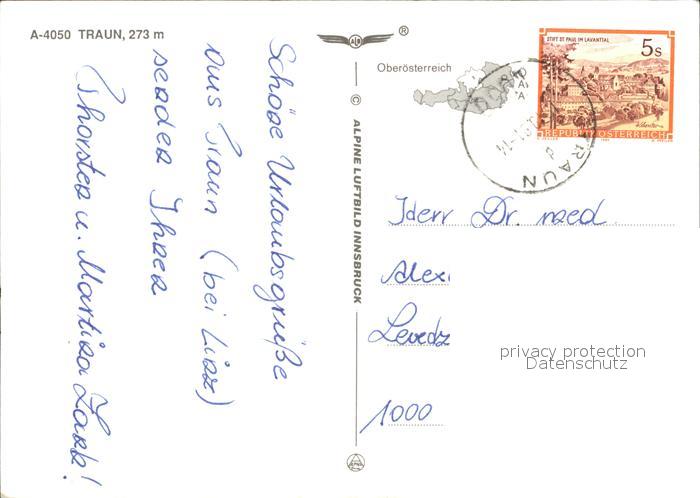 A-4050 TRAUN, 273 m
Schöne Urlaubsgrüße
aus Traun (bei Linz)
senden Ihnen
Thorsten u. Martina Zank!
© ALPINE LUFTBILD INNSBRUCK
®
Oberösterreich
STIFT ST. PAUL IM LAVANTTAL
5s
REPUBLIK ÖSTERREICH
TRAUN
Herr Dr. med.
Alex
Levedz
1000
privacy protection
Datenschutz